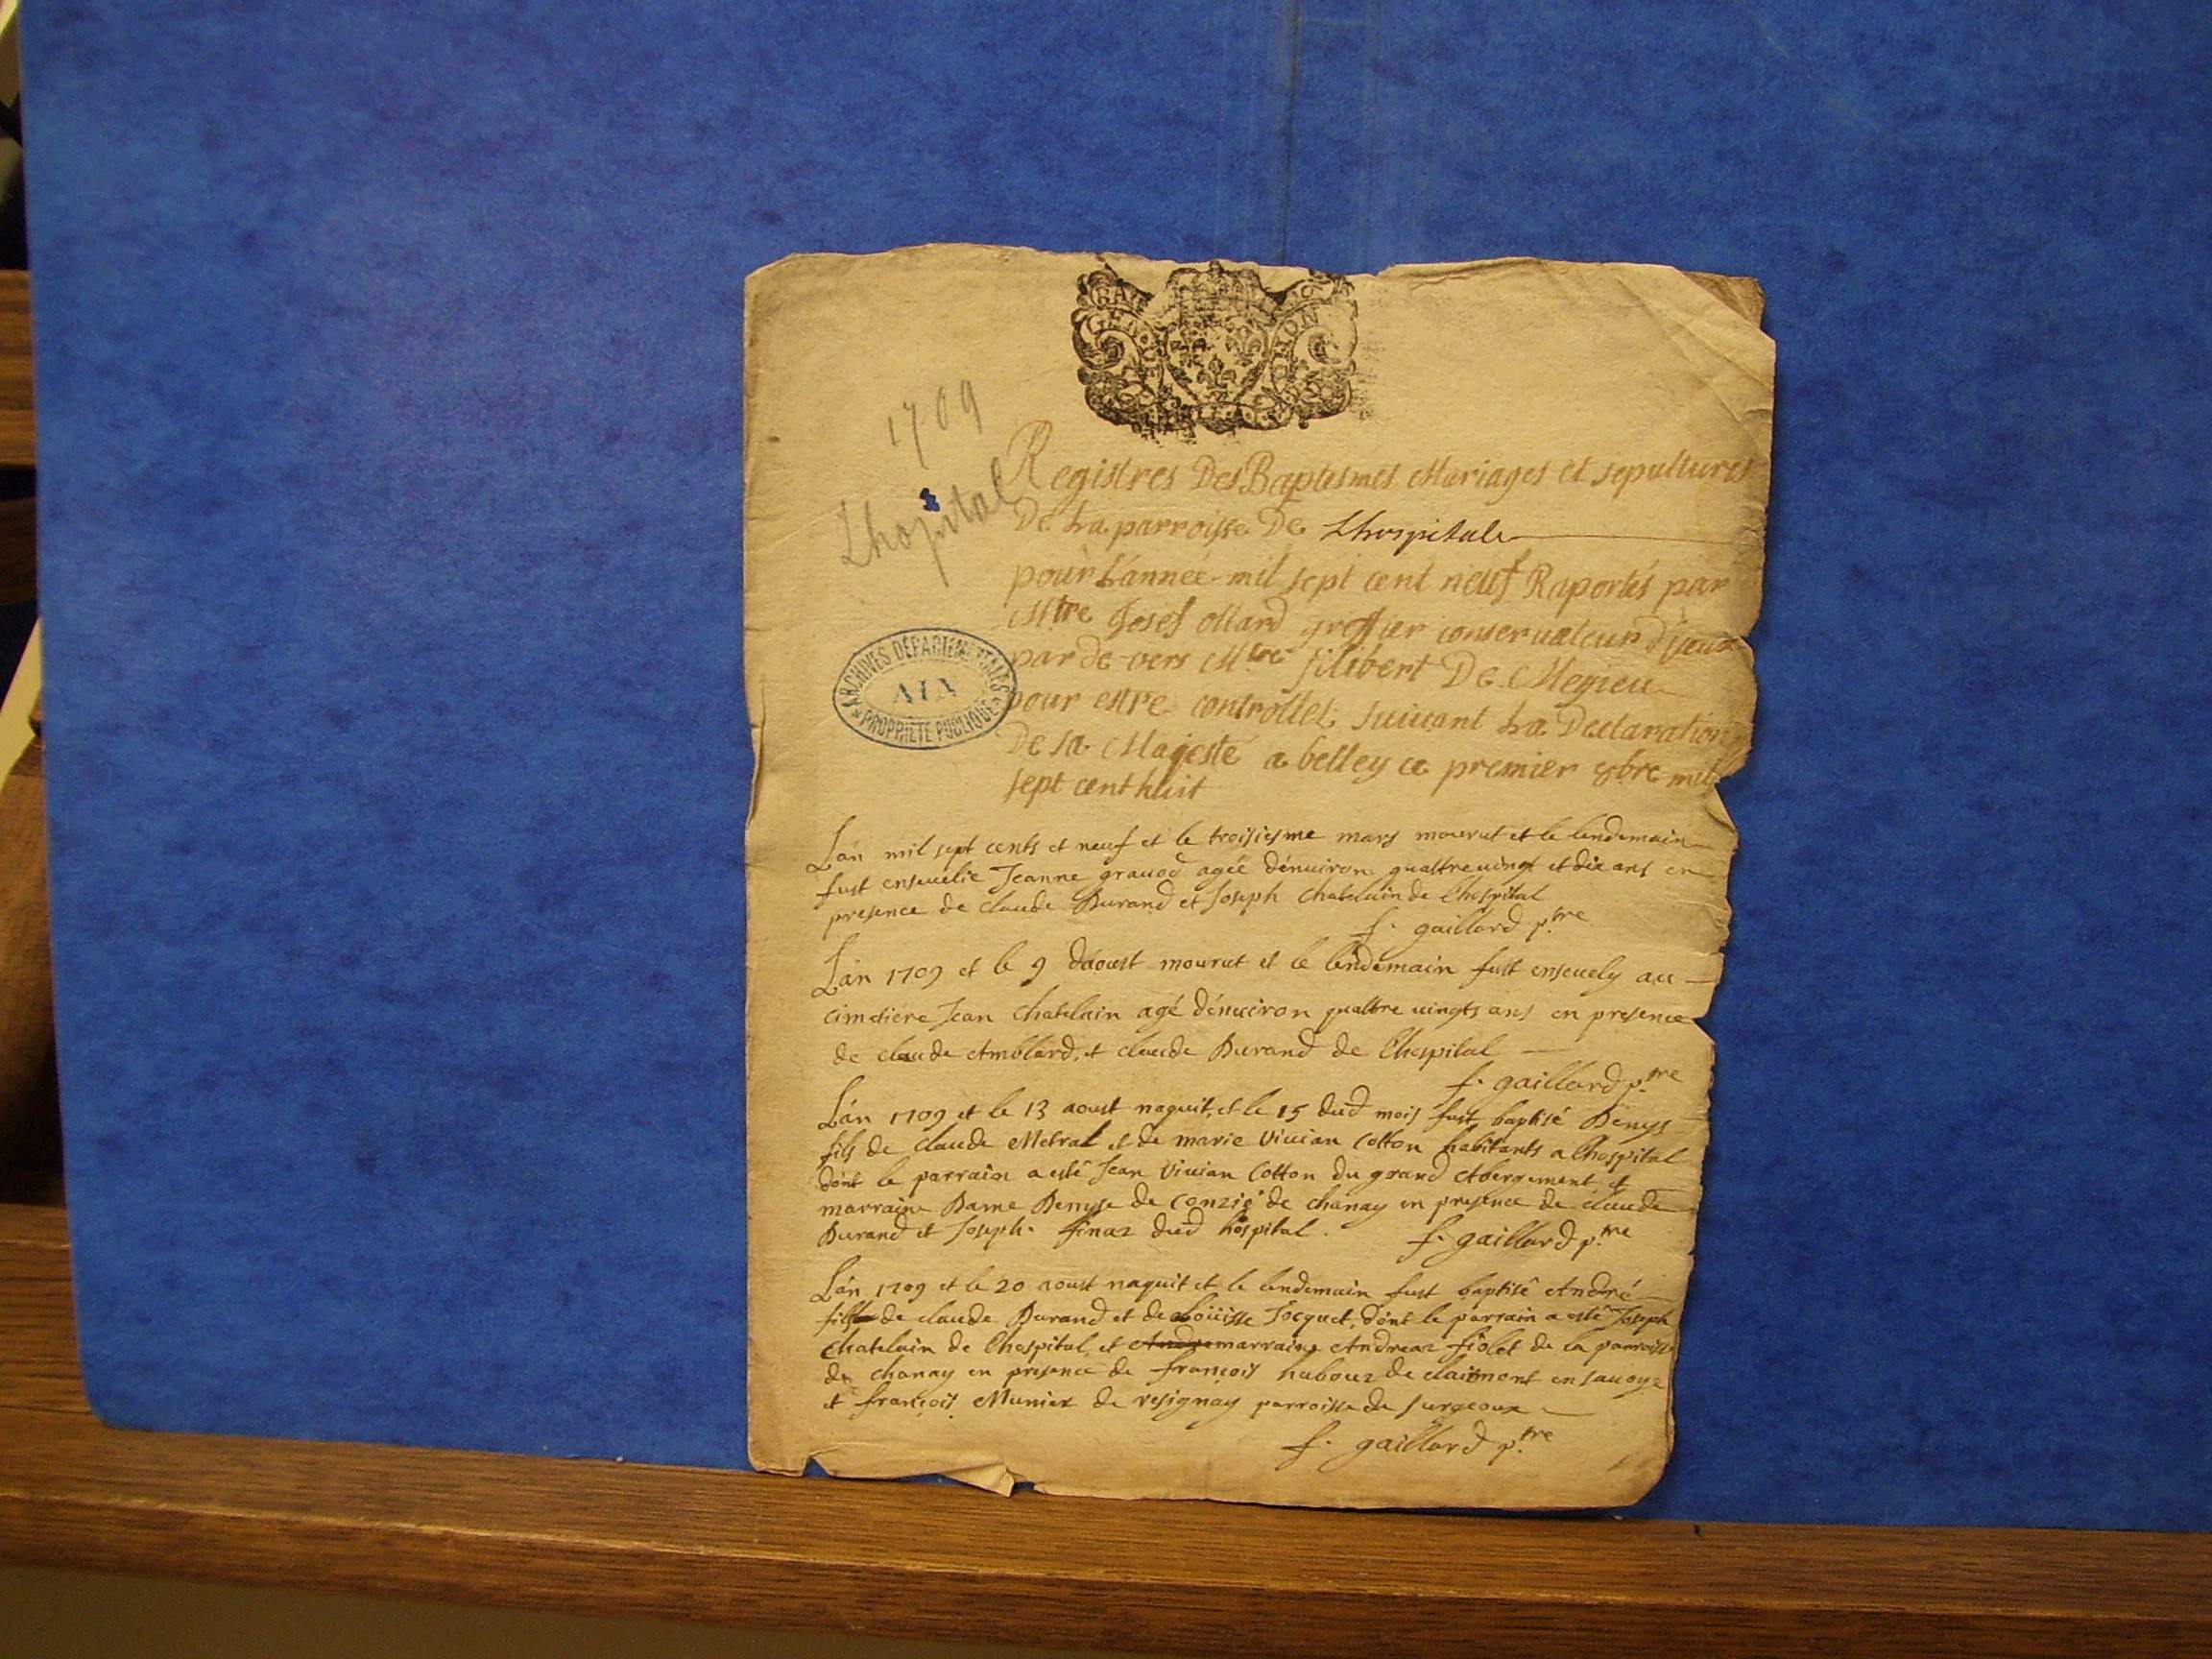 GEN
1709
Lhopital
Registres Des Baptesmes Mariages et sepultures
De La parroisse De Lhospitale
pour L'année mil sept cent neuf Raportés par
Mtre Josef greffier conseruateur d'jceux
par de vers Mtre filibert De Meyrieu
pour estre controlles suiuant La Declaration
De sa Majesté a belley ce premier 8bre mil
sept cent huit
ARCHIVES DÉPARTEMENTALES
AIN
PROPRIÉTÉ PUBLIQUE
L'án mil sept cents et neuf et le troisiesme mars mourut et le lendemain
fust enseuelie Jeanne grauod agée dénuiron quattreuingt et dix ans en
presence de claude Durand et Joseph Chatelain de l'hospital
f. gaillard p.tre
L'án 1709 et le 9 d'aoust mourut et le lendemain fust enseuely au
cimetiere Jean Chatelain agé dénuiron quattre uingts ans en presence
de claude Amblard, et claude Durand de l'hospital
f. gaillard p.tre
L'án 1709 et le 13 aoust naquit, et le 15 dud mois fust baptisé Denys
fils de claude Metral et de marie Viuian Cotton habitants a l'hospital
dont le parrain a esté Jean Viuian Cotton du grand Abergement et
marraine Dame Denyse de Conzié de chanay en presence de claude
Durand et Joseph finaz dud hospital.
f. gaillard p.tre
L'án 1709 et le 20 aoust naquit et le lendemain fust baptisé André
fils de claude Durand et de Loüisse Jocquet, dont le parrain a esté Joseph
Chatelain de l'hospital, et Andre marraine Andreaz fiolet de la parroisse
de chanay en presence de françois habouz de clairmont en sauoye
et françois Munier de resignay parroisse de surgeoux
f. gaillard p.tre